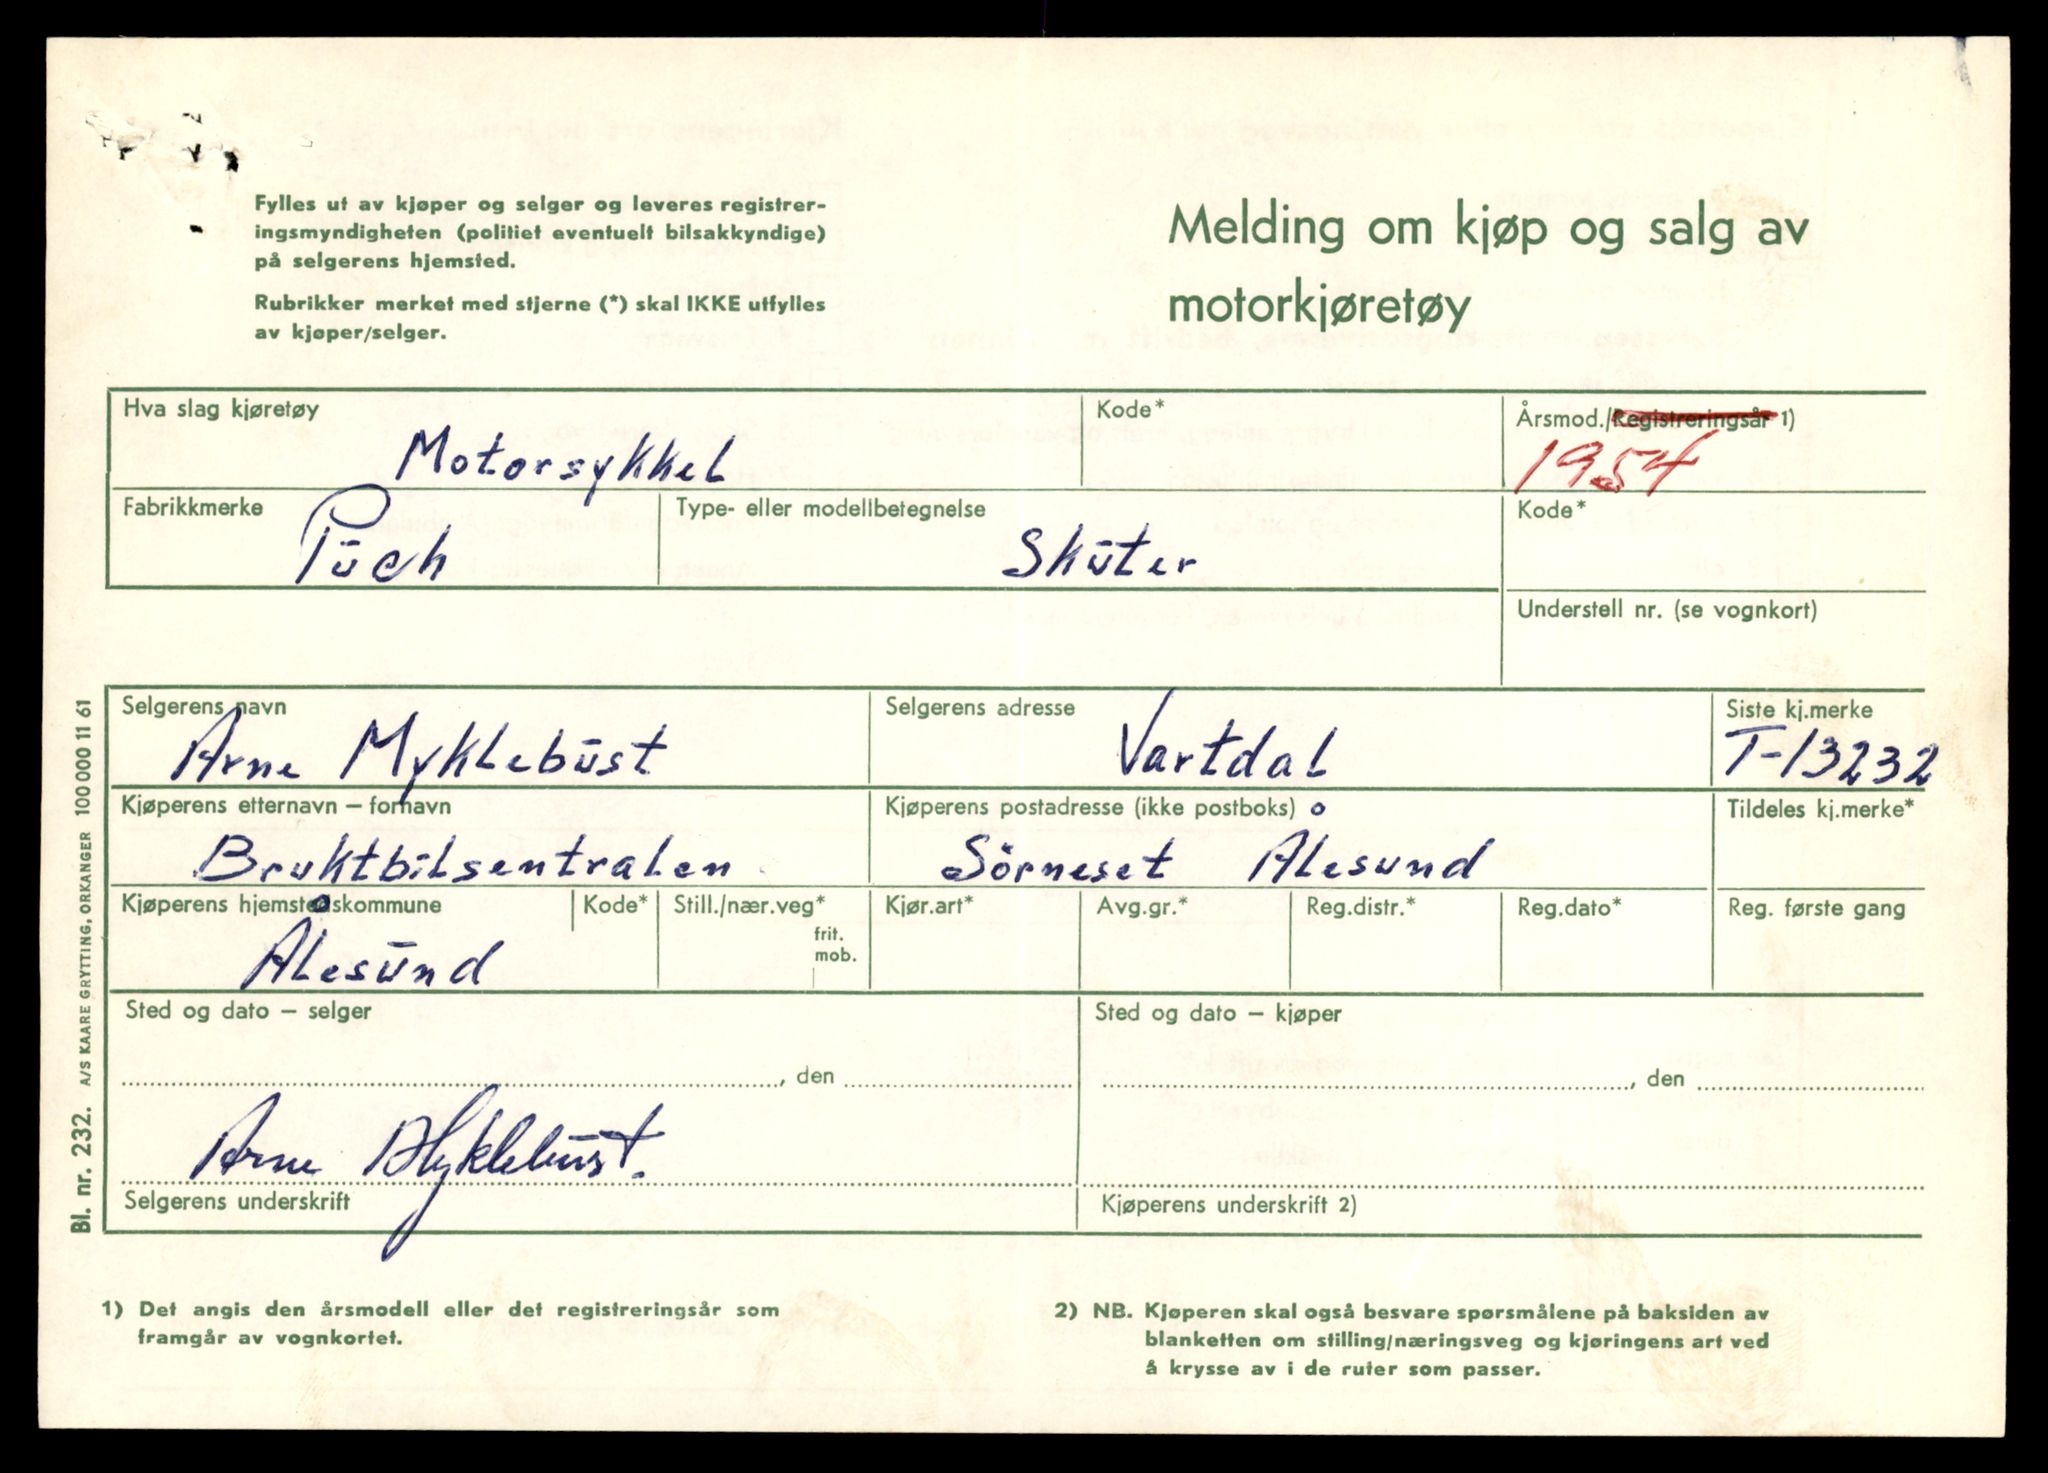 Fylles ut av kjøper og selger og leveres registrer-
ingsmyndigheten (politiet eventuelt bilsakkyndige)
på selgerens hjemsted.
Rubrikker merket med stjerne (*) skal IKKE utfylles
av kjøper/selger.
Melding om kjøp og salg av
motorkjøretøy
Hva slag kjøretøy
Motorsykkel
Kode*
Årsmod./Registreringsår 1)
1954
Fabrikkmerke
Puch
Type- eller modellbetegnelse
Skuter
Kode*
Understell nr. (se vognkort)
Selgerens navn
Arne Myklebust
Selgerens adresse
Vartdal
Siste kj.merke
T-13232
Kjøperens etternavn – fornavn
Bruktbilsentralen
Kjøperens postadresse (ikke postboks)
Sörneset Ålesund
Tildeles kj.merke*
Kjøperens hjemstedskommune
Ålesund
Kode*
Still./nær.veg*
frit.
mob.
Kjør.art*
Avg.gr.*
Reg.distr.*
Reg.dato*
Reg. første gang
Sted og dato – selger
, den
Arne Myklebust.
Selgerens underskrift
Sted og dato – kjøper
, den
Kjøperens underskrift 2)
Bl. nr. 232. A/S KAARE GRYTTING, ORKANGER 100 000 11 61
1) Det angis den årsmodell eller det registreringsår som
framgår av vognkortet.
2) NB. Kjøperen skal også besvare spørsmålene på baksiden av
blanketten om stilling/næringsveg og kjøringens art ved
å krysse av i de ruter som passer.